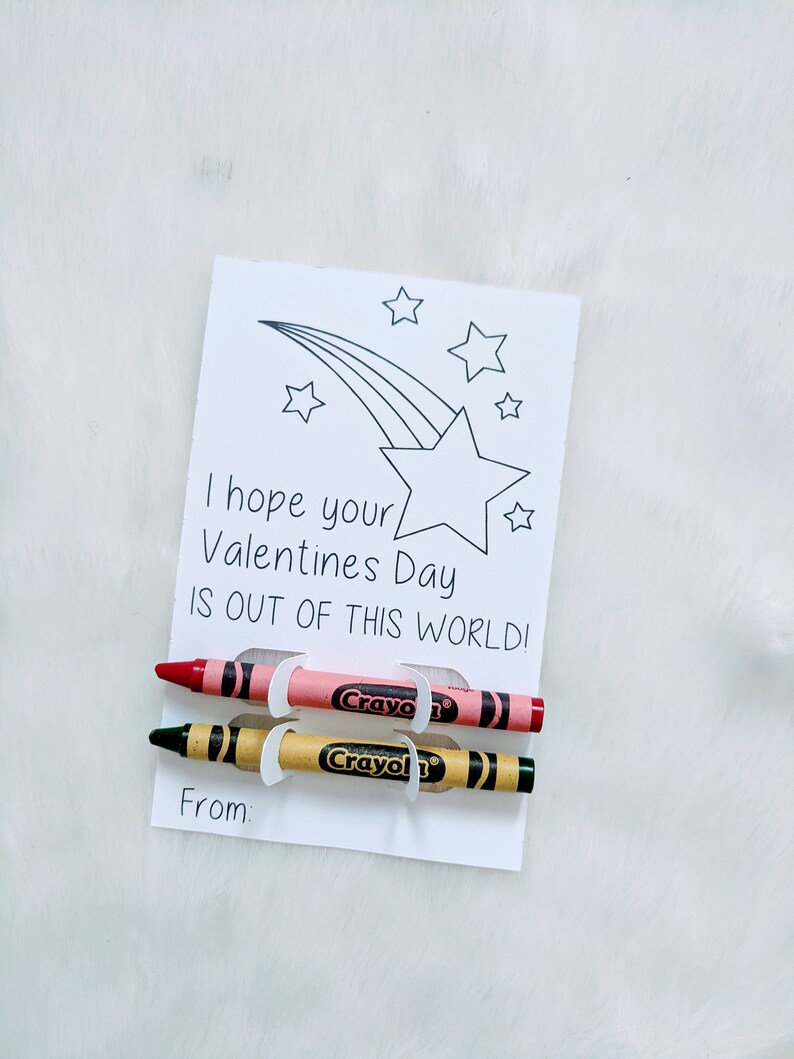 I hope your
Valentines Day
IS OUT OF THIS WORLD!
Crayola®
Crayola®
From: